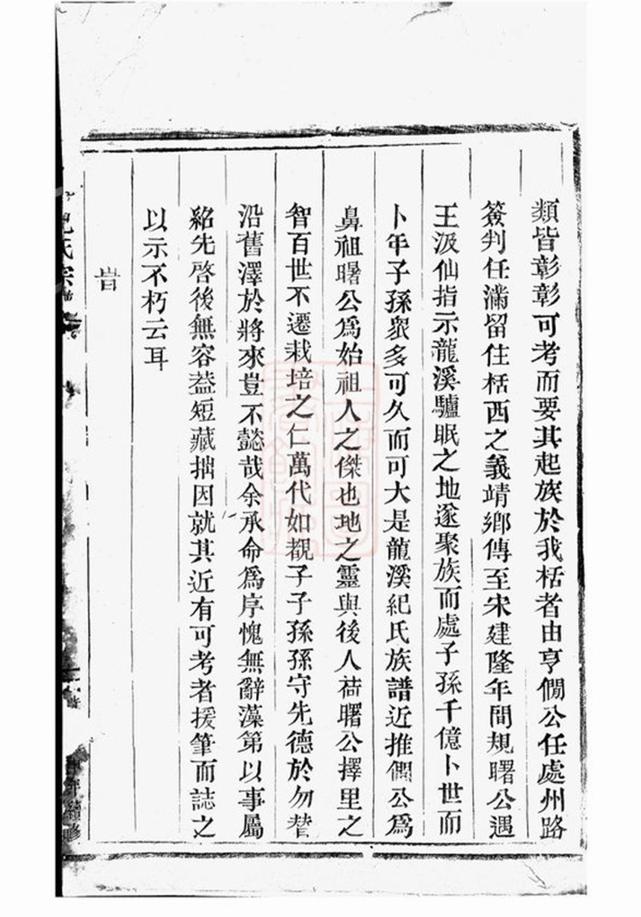 類皆彰彰可考而要其起族於我栝者由亨僩公任處州路
簽判任滿留住栝西之義靖鄉傳至宋建隆年間規曙公遇
王汲仙指示龍溪驢眠之地遂聚族而處子孫千億卜世而
卜年子孫眾多可久而可大是龍溪紀氏族譜近推僩公為
鼻祖曙公為始祖人之傑也地之靈與後人荷曙公擇里之
智百世不遷栽培之仁萬代如覩子子孫孫守先德於勿替
沿舊澤於將來豈不懿哉余承命為序愧無辭藻第以事屬
紹先啓後無容葢短藏拙因就其近有可考者援筆而誌之
以示不朽云耳
旹
氏宗